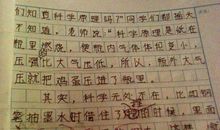 们知道科学原理吗？”同学们都摇头
不知道，老师说：“科学原理是纸在
瓶里燃烧，使瓶内气体体积变小，
压强比大气压低，所以，瓶外大气
压就把鸡蛋压进了瓶里。
其实，科学无处不在，比如钢
笔抽墨水时借住了 的时候，里面